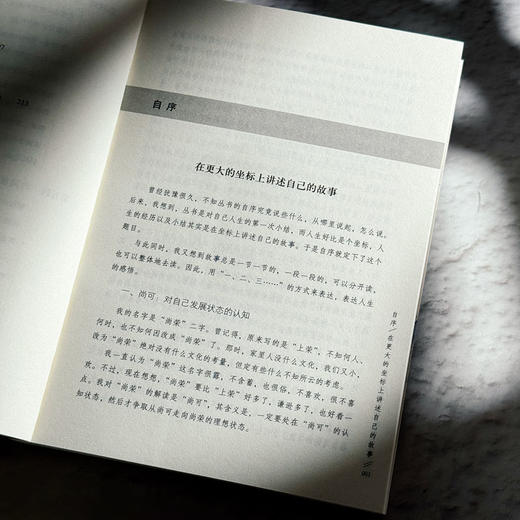 213
自序
在更大的坐标上讲述自己的故事
曾经犹豫很久，不知丛书的自序究竟说些什么，从哪里说起，怎么说。
后来，我想到，丛书是对自己人生的第一次小结，而人生好比是个坐标，人
生的经历以及小结其实是在坐标上讲述自己的故事。于是自序就定下了这个
题目。
与此同时，我又想到故事总是一节一节的，一段一段的，可以分开读，
也可以整体地去读。因此，用“一、二、三……”的方式来表达，表达人生
的感悟。
一、尚可：对自己发展状态的认知
我的名字是“尚荣”二字。曾记得，原来写的是“上荣”，不知何人、
何时，也不知何因改成“尚荣”了。那时，家里人没什么文化，我们又小，
改为“尚荣”绝对没有什么文化的考量，但定有些什么不知所云的考虑。
我一直认为“尚荣”这名字很露，不含蓄，也很俗，不喜欢，很不喜
欢。不过，现在想想，“尚荣”要比“上荣”好多了，谦逊多了，也好看一
点。我对“尚荣”的解读是“尚可”，其含义是，一定要处在“尚可”的认
知状态，然后才争取从尚可走向尚荣的理想状态。
自序／在更大的坐标上讲述自己的故事
001